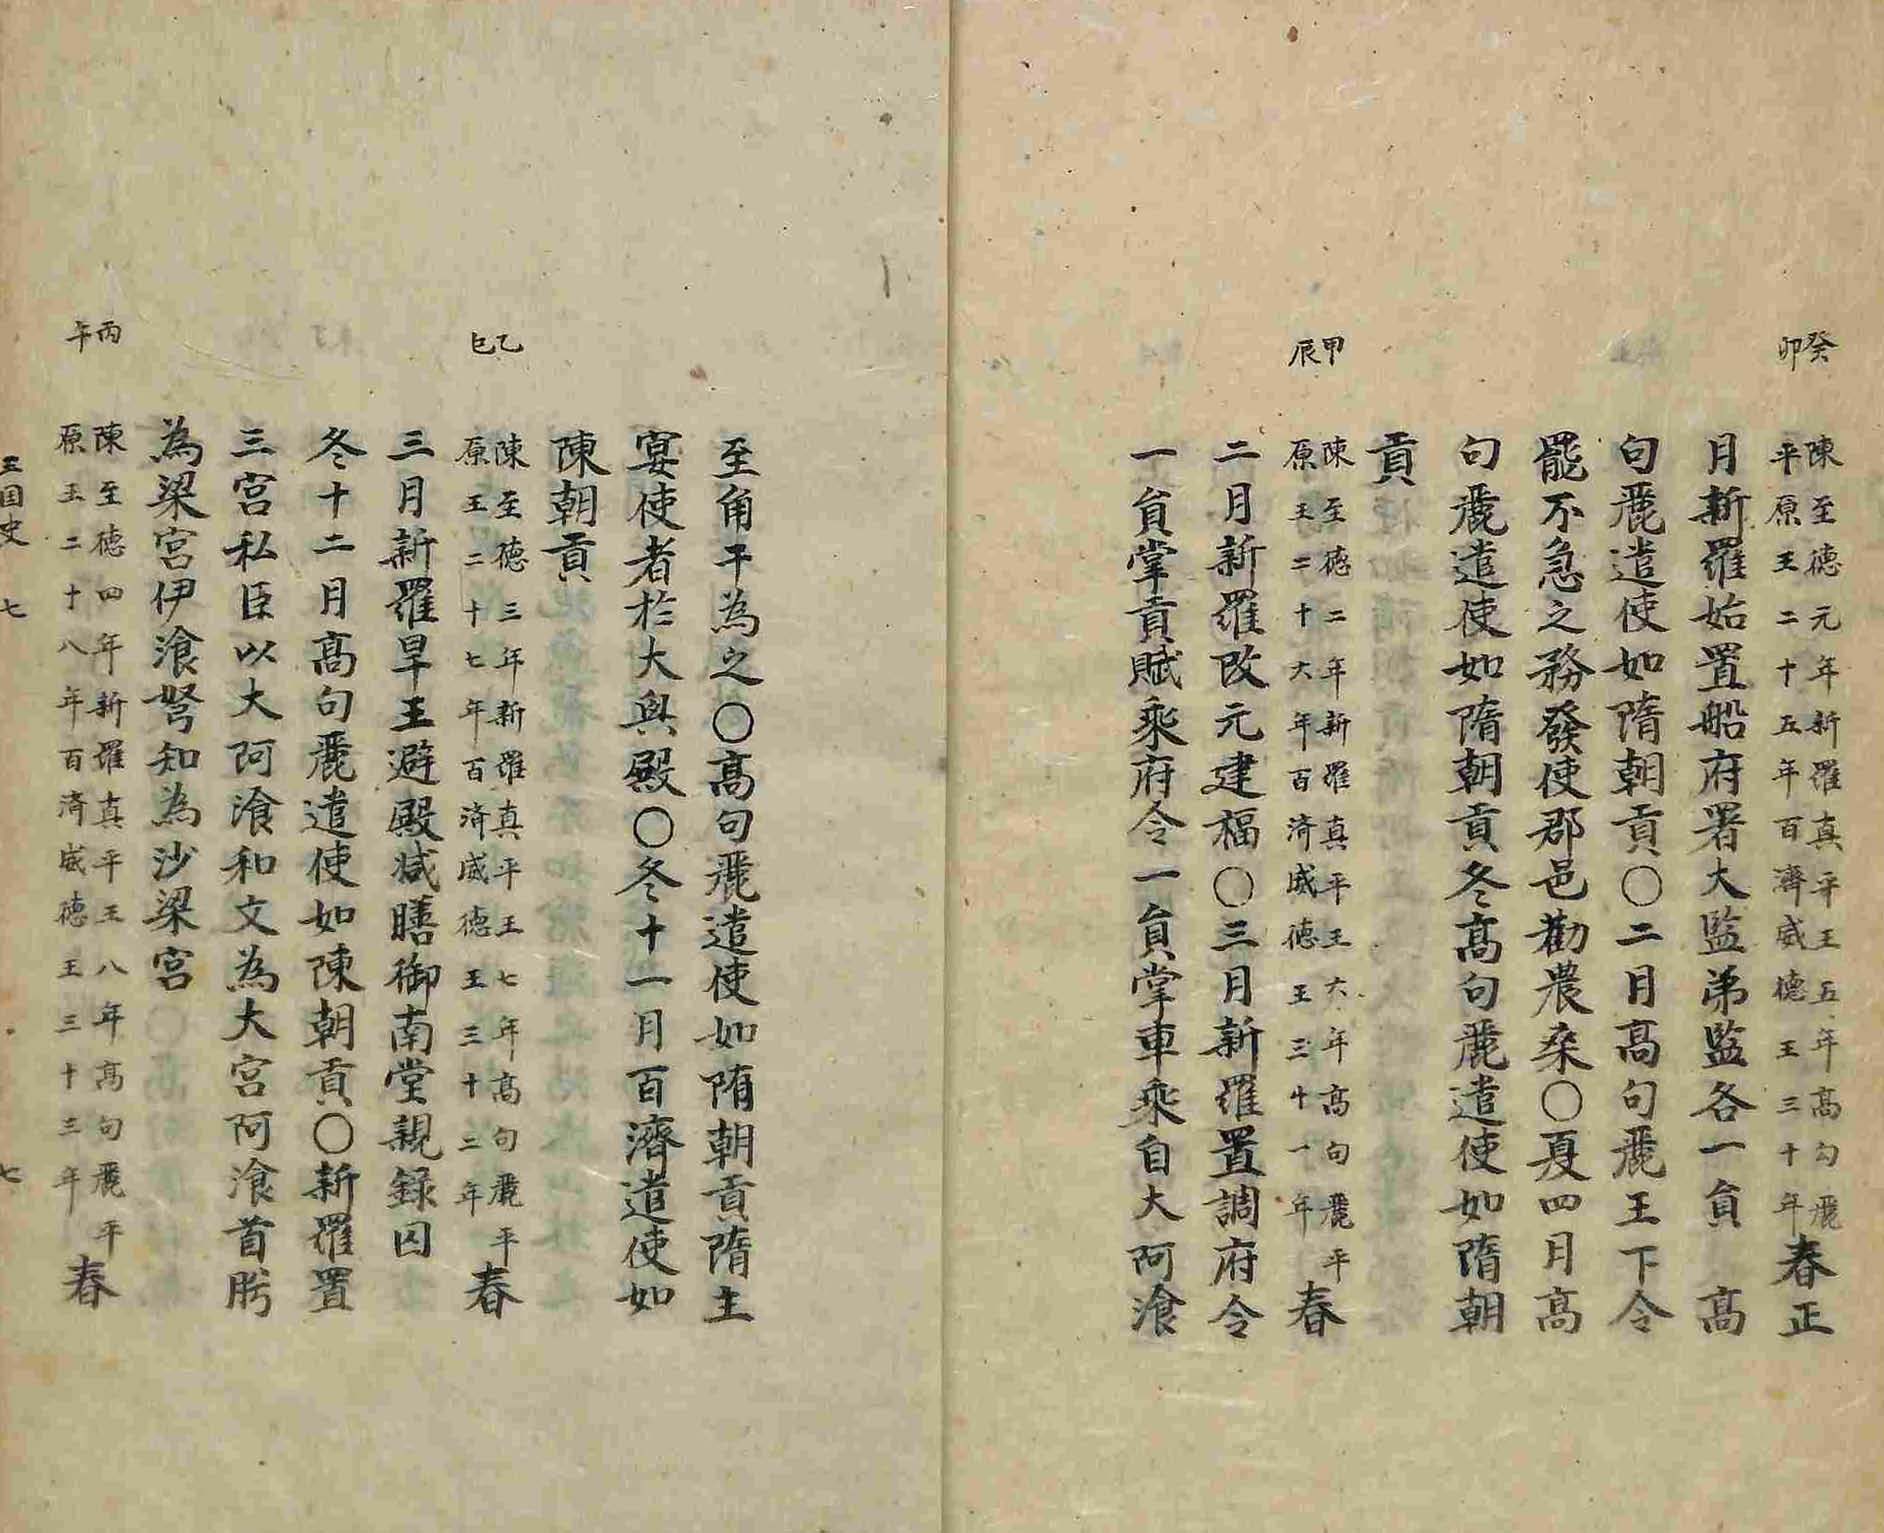 癸卯
陳至德元年新羅真平王五年高勾麗
平原王二十五年百濟威德王三十年春正
月新羅始置船府署大監弟監各一負 高
句麗遣使如隋朝貢〇二月高句麗王下令
罷不急之務發使郡邑勸農桒〇夏四月高
句麗遣使如隋朝貢冬高句麗遣使如隋朝
貢
甲辰
陳至德二年新羅真平王六年高句麗平
原王二十六年百済威德王三十一年春
二月新羅改元建福〇三月新羅置調府令
一負掌貢賦乘府令一負掌車乘自大阿飡
至角干為之〇高句麗遣使如隋朝貢隋主
宴使者於大興殿〇冬十一月百濟遣使如
陳朝貢
乙巳
陳至德三年新羅真平王七年高句麗平
原王二十七年百済威德王三十二年春
三月新羅旱王避殿减膳御南堂親録囚
冬十二月高句麗遣使如陳朝貢〇新羅置
三宮私臣以大阿飡和文為大宮阿飡首肹
為梁宮伊飡弩知為沙梁宮
丙午
陳至德四年新羅真平王八年高句麗平
原王二十八年百済威德王三十三年春
三国史 七
七